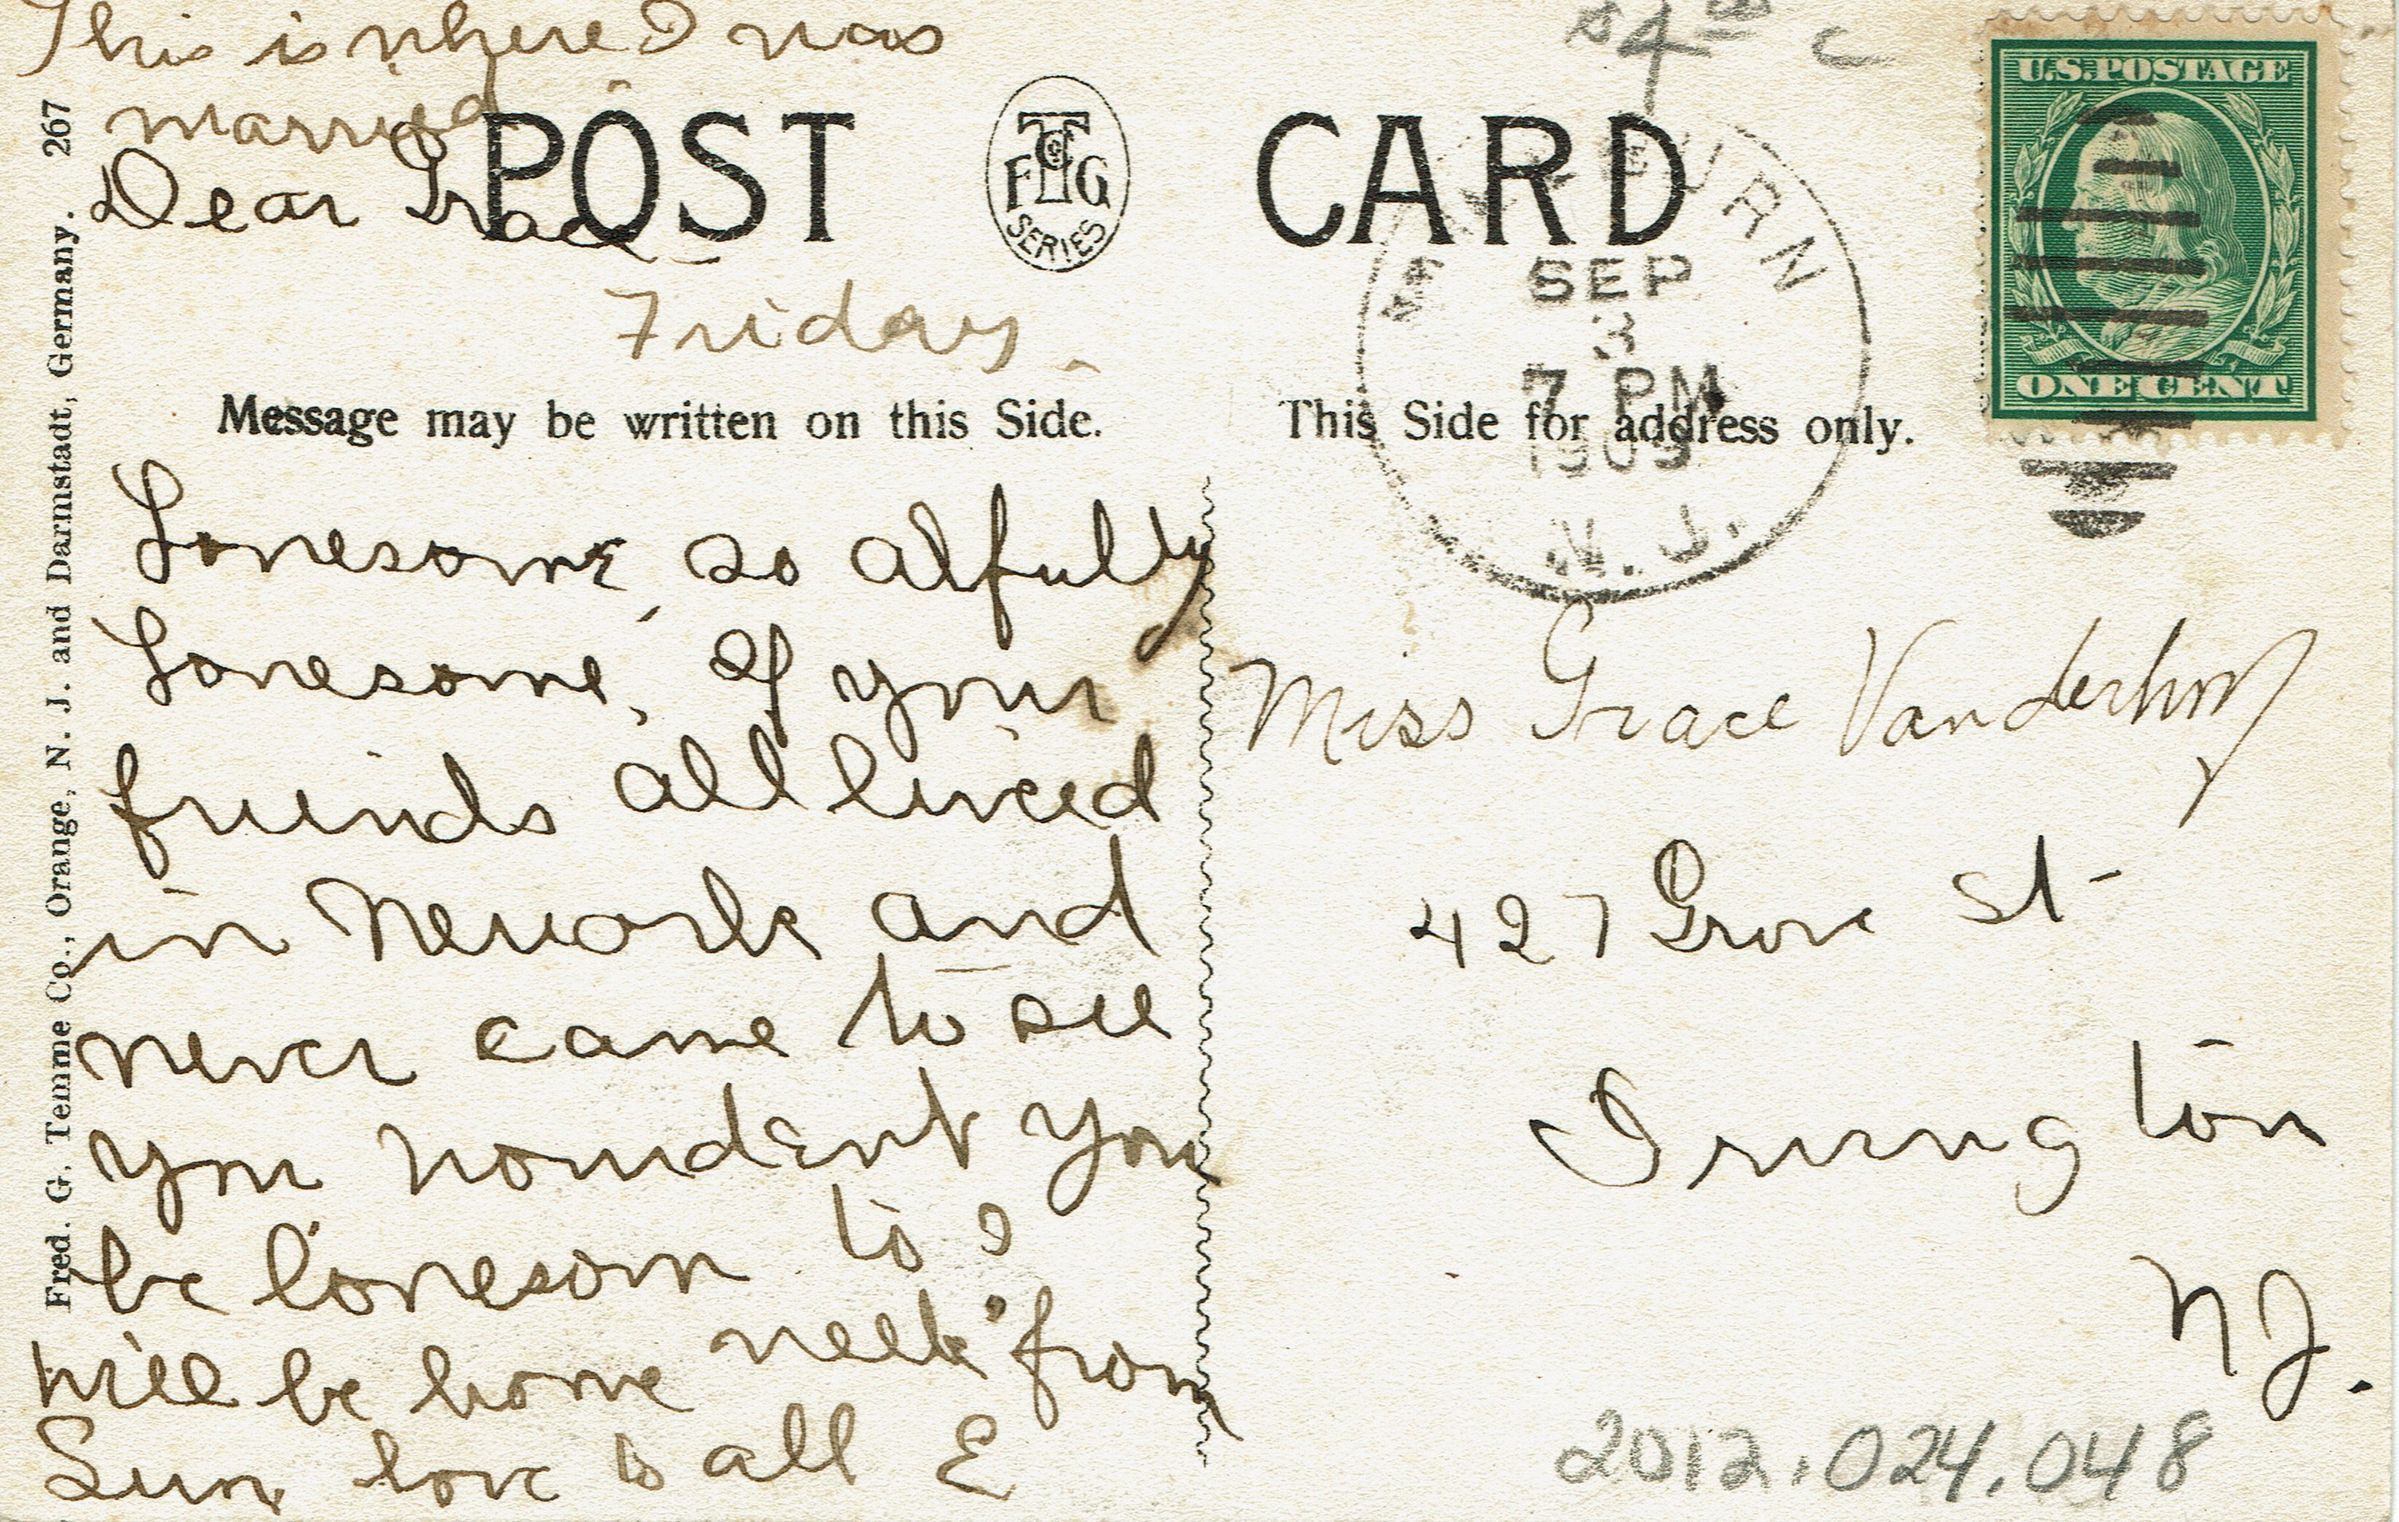 This is where I was
married
Dear Grace
Friday
POST CARD
T Co
F G
SERIES
Message may be written on this Side.
Lonesome, so alfully
Lonesome, If your
friends all lived
in Newark and
never came to see
you wouldent you
be lonesom to?
will be home week from
Sun love to all E
Fred. G. Temme Co., Orange, N. J. and Darmstadt, Germany. 267
This Side for address only.
U.S. POSTAGE
ONE CENT
SEP
3
7 PM
1909
N. J.
Miss Grace Vanderhoof
427 Grove St
Irvington
N J.
2012.024.048